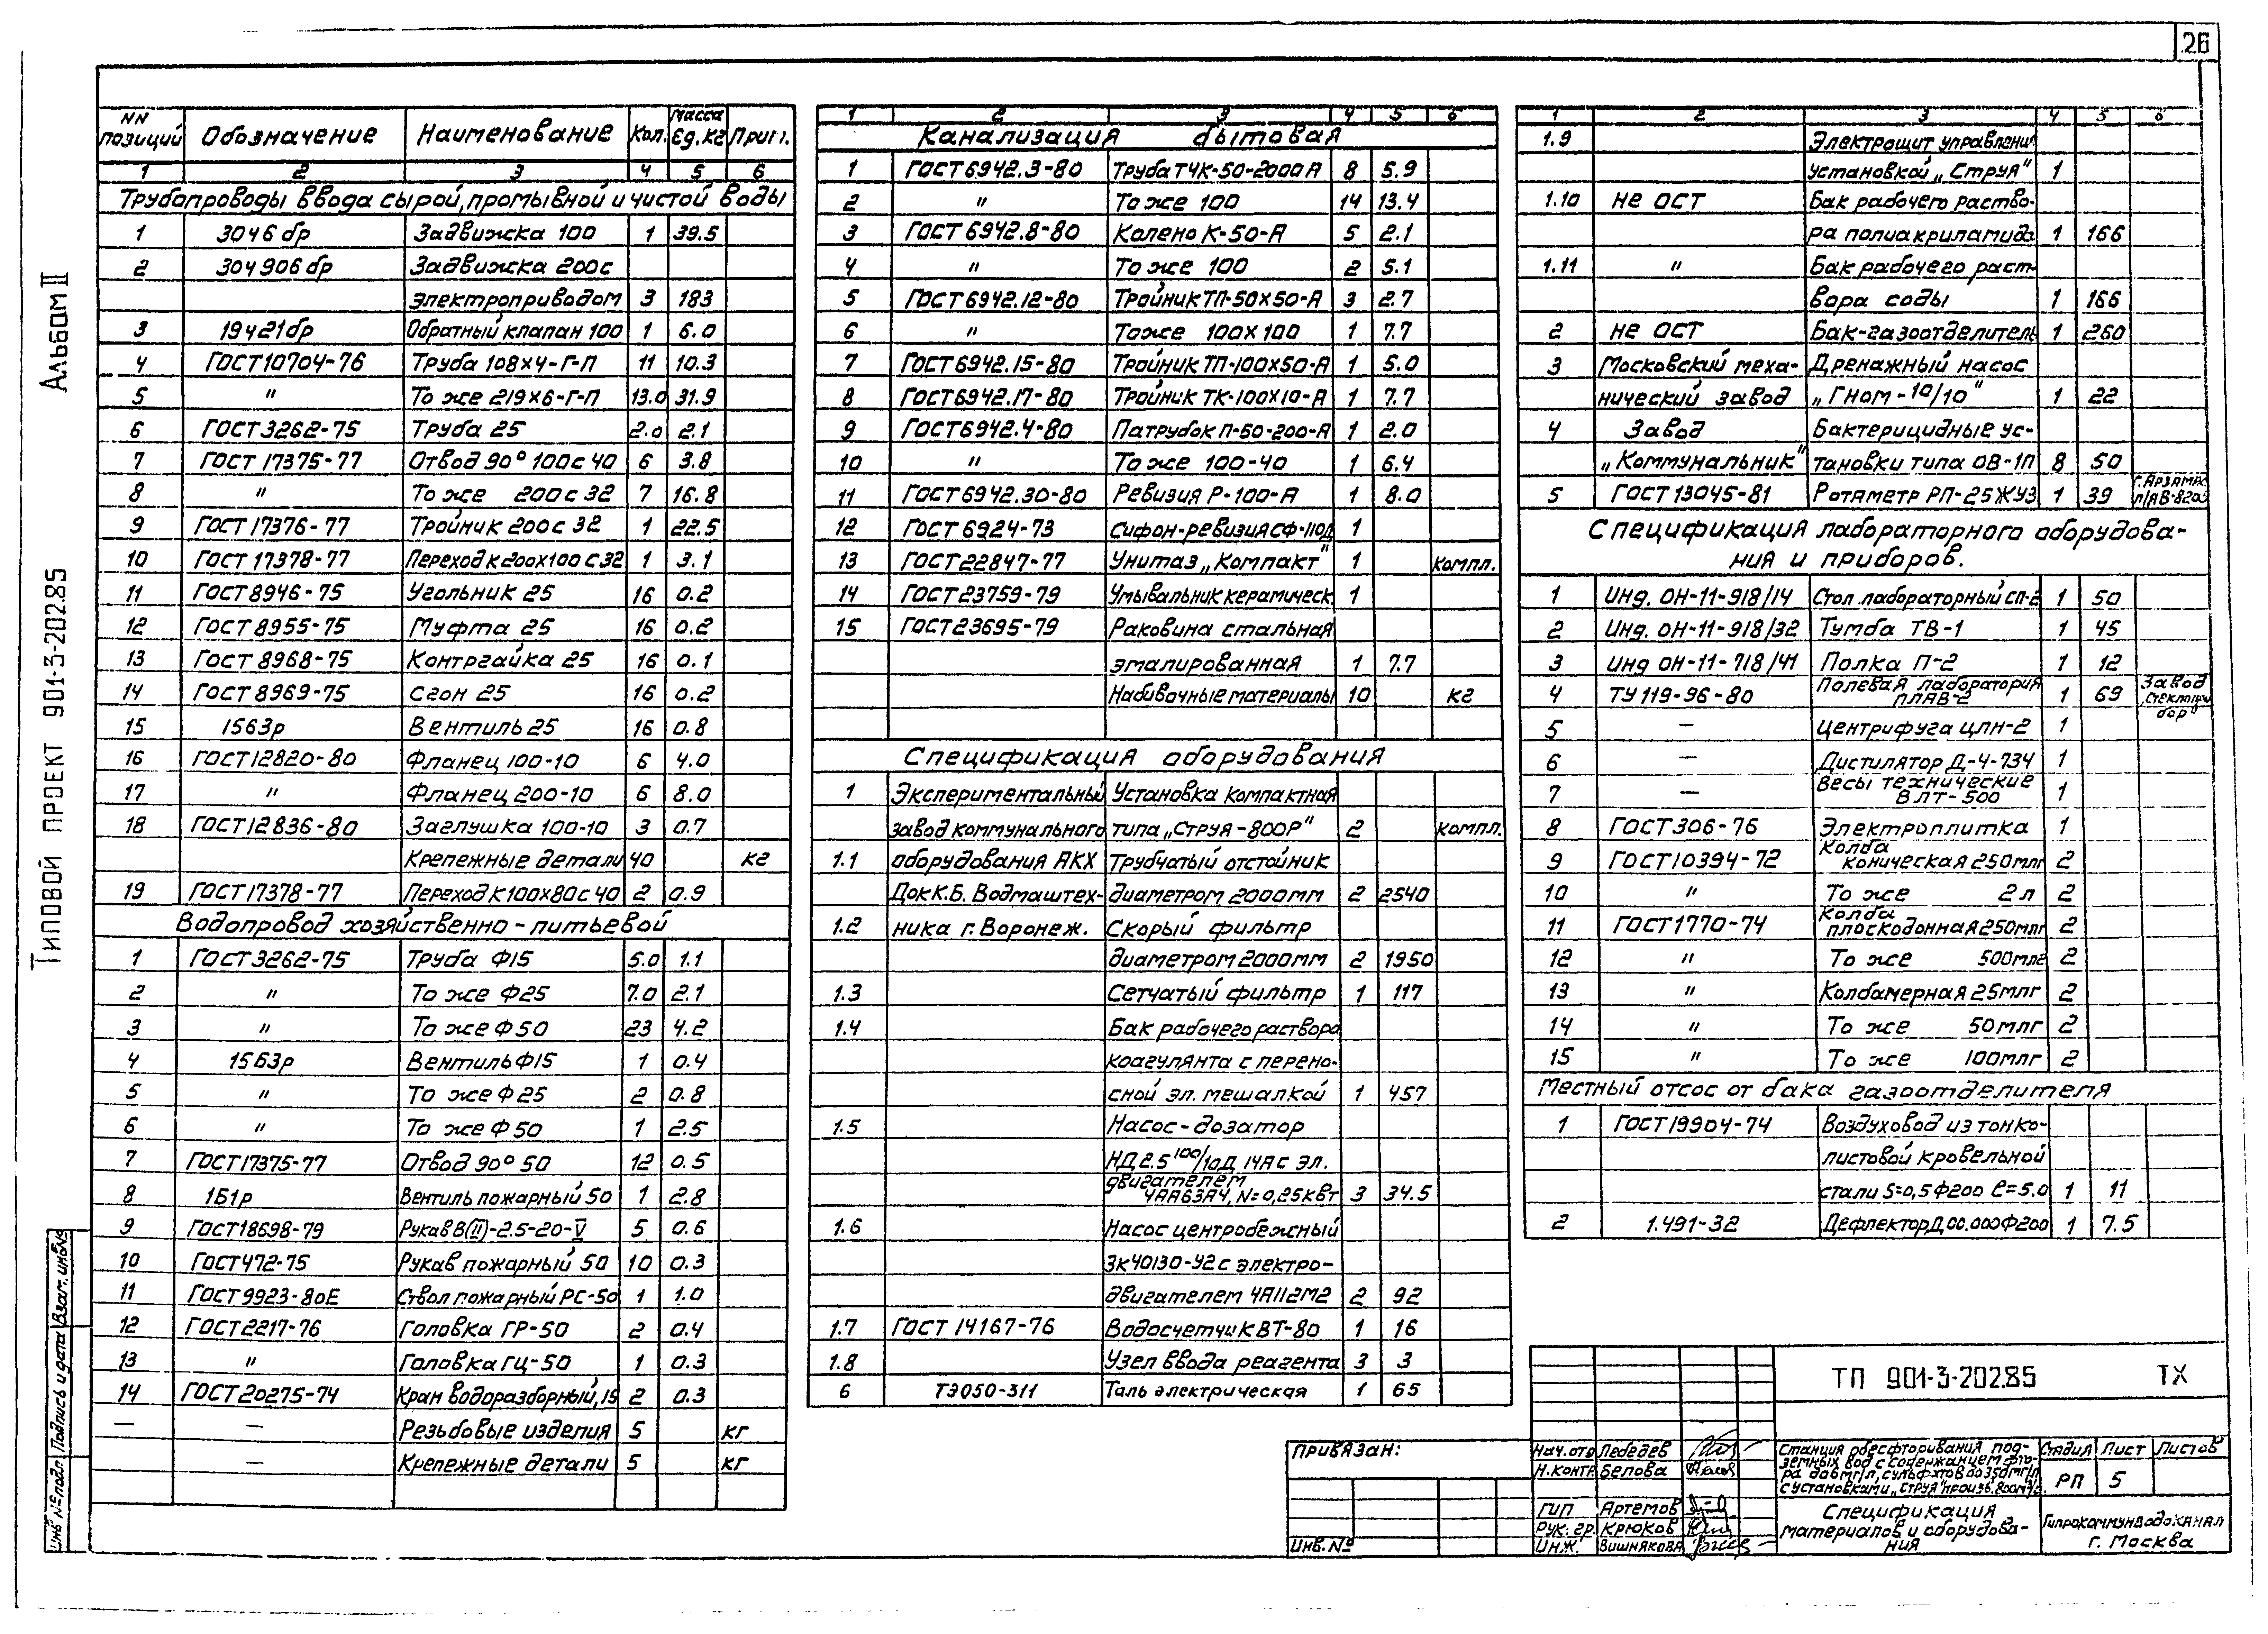 26
Альбом II
Типовой проект 901-3-202.85
NN позиций Обозначение Наименование Кол. Масса ед. кг Прим.
1 2 3 4 5 6
Трубопроводы ввода сырой, промывной и чистой воды
1 30ч6 бр Задвижка 100 1 39.5
2 30ч906 бр Задвижка 200 с
электроприводом 3 183
3 19ч21 бр Обратный клапан 100 1 6.0
4 ГОСТ 10704-76 Труба 108х4-Г-П 11 10.3
5 " То же 219х6-Г-П 13.0 31.9
6 ГОСТ 3262-75 Труба 25 2.0 2.1
7 ГОСТ 17375-77 Отвод 90° 100с40 6 3.8
8 " То же 200с32 7 16.8
9 ГОСТ 17376-77 Тройник 200с32 1 22.5
10 ГОСТ 17378-77 Переход К200х100 с32 1 3.1
11 ГОСТ 8946-75 Угольник 25 16 0.2
12 ГОСТ 8955-75 Муфта 25 16 0.2
13 ГОСТ 8968-75 Контргайка 25 16 0.1
14 ГОСТ 8969-75 Сгон 25 16 0.2
15 15б3р Вентиль 25 16 0.8
16 ГОСТ 12820-80 Фланец 100-10 6 4.0
17 " Фланец 200-10 6 8.0
18 ГОСТ 12836-80 Заглушка 100-10 3 0.7
Крепежные детали 40 кг
19 ГОСТ 17378-77 Переход К100х80с40 2 0.9
Водопровод хозяйственно-питьевой
1 ГОСТ 3262-75 Труба Ф15 5.0 1.1
2 " То же Ф25 7.0 2.1
3 " То же Ф50 23 4.2
4 15б3р Вентиль Ф15 1 0.4
5 " То же Ф25 2 0.8
6 " То же Ф50 1 2.5
7 ГОСТ 17375-77 Отвод 90° 50 12 0.5
8 1Б1р Вентиль пожарный 50 1 2.8
9 ГОСТ 18698-79 Рукав В(II)-2.5-20-V 5 0.6
10 ГОСТ 472-75 Рукав пожарный 50 10 0.3
11 ГОСТ 9923-80Е Ствол пожарный РС-50 1 1.0
12 ГОСТ 2217-76 Головка ГР-50 2 0.4
13 " Головка ГЦ-50 1 0.3
14 ГОСТ 20275-74 Кран водоразборный, 15 2 0.3
— — Резьбовые изделия 5 кг
— Крепежные детали 5 кг
1 2 3 4 5 6
Канализация бытовая
1 ГОСТ 6942.3-80 Труба ТЧК-50-2000А 8 5.9
2 " То же 100 14 13.4
3 ГОСТ 6942.8-80 Колено К-50-А 5 2.1
4 " То же 100 2 5.1
5 ГОСТ 6942.12-80 Тройник ТП-50х50-А 3 2.7
6 " То же 100х100 1 7.7
7 ГОСТ 6942.15-80 Тройник ТП-100х50-А 1 5.0
8 ГОСТ 6942.17-80 Тройник ТК-100х10-А 1 7.7
9 ГОСТ 6942.4-80 Патрубок П-50-200-А 1 2.0
10 " То же 100-40 1 6.4
11 ГОСТ 6942.30-80 Ревизия Р-100-А 1 8.0
12 ГОСТ 6924-73 Сифон-ревизия СФ-110Д 1
13 ГОСТ 22847-77 Унитаз „Компакт" 1 компл.
14 ГОСТ 23759-79 Умывальник керамическ. 1
15 ГОСТ 23695-79 Раковина стальная
эмалированная 1 7.7
Набивочные материалы 10 кг
Спецификация оборудования
1 Экспериментальный Установка компактная
завод коммунального типа „Струя-800Р" 2 компл.
1.1 оборудования АКХ Трубчатый отстойник
Док К.Б. Водмаштех- диаметром 2000мм 2 2540
1.2 ника г. Воронеж. Скорый фильтр
диаметром 2000мм 2 1950
1.3 Сетчатый фильтр 1 117
1.4 Бак рабочего раствора
коагулянта с перено-
сной эл. мешалкой 1 457
1.5 Насос-дозатор
НД 2.5 100/10Д 14А с эл.
двигателем
4АА63А4, N=0,25 кВт 3 34.5
1.6 Насос центробежный
3к 40130-У2 с электро-
двигателем 4А112М2 2 92
1.7 ГОСТ 14167-76 Водосчетчик ВТ-80 1 16
1.8 Узел ввода реагента 3 3
6 ТЭ050-311 Таль электрическая 1 65
1 2 3 4 5 6
1.9 Электрощит управления
установкой „Струя" 1
1.10 не ОСТ Бак рабочего раство-
ра полиакриламида 1 166
1.11 " Бак рабочего раст-
вора соды 1 166
2 не ОСТ Бак-газоотделитель 1 260
3 Московский меха- Дренажный насос
нический завод „Гном-10/10" 1 22
4 Завод Бактерицидные ус-
„Коммунальник" тановки типа ОВ-1П 8 50
5 ГОСТ 13045-81 Ротаметр РП-25ЖУЗ 1 39 г. Арзамас п/я В-8205
Спецификация лабораторного оборудова-
ния и приборов.
1 Инд. ОН-11-918/14 Стол лабораторный СЛ-2 1 50
2 Инд. ОН-11-918/32 Тумба ТВ-1 1 45
3 Инд ОН-11-718/41 Полка П-2 1 12
4 ТУ 119-96-80 Полевая лаборатория ПЛАВ-2 1 69 Завод „Стеклопри бор"
5 — Центрифуга ЦЛН-2 1
6 — Дистилятор Д-4-734 1
7 — Весы технические ВЛТ-500 1
8 ГОСТ 306-76 Электроплитка 1
9 ГОСТ 10394-72 Колба коническая 250млг 2
10 " То же 2л 2
11 ГОСТ 1770-74 Колба плоскодонная 250млг 2
12 " То же 500млг 2
13 " Колба мерная 25млг 2
14 " То же 50млг 2
15 " То же 100млг 2
Местный отсос от бака газоотделителя
1 ГОСТ 19904-74 Воздуховод из тонко-
листовой кровельной
стали S=0,5 Ф200 l=5.0 1 11
2 1.491-32 Дефлектор Д00.000Ф200 1 7.5
ТП 901-3-202.85 ТХ
Привязан:
Инв. №
Нач. отд Лебедев
Н. контр Белова
ГИП Артемов
Рук. гр. Крюков
Инж. Вишнякова
Станция обесфторивания под-
земных вод с содержанием фто-
ра до 6 мг/л, сульфатов до 350 мг/л
с установками „Струя" произв. 800 м³/с.
Стадия Лист Листов
РП 5
Спецификация
материалов и оборудова-
ния
Гипрокоммунводоканал
г. Москва
Инв № подл. Подпись и дата Взам. инв №